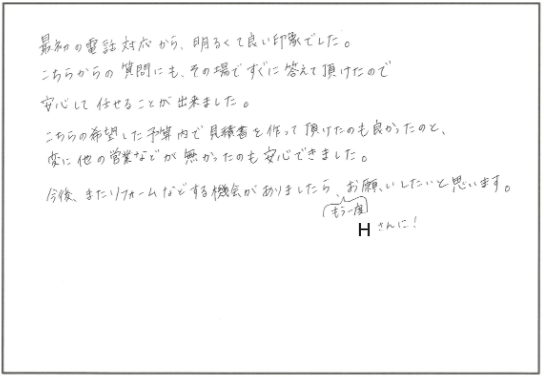 最初の電話対応から、明るくて良い印象でした。
こちらからの質問にも、その場ですぐに答えて頂けたので
安心して任せることが出来ました。
こちらの希望した予算内で見積書を作って頂けたのも良かったのと、
変に他の営業などが無かったのも安心できました。
今後、またリフォームなどする機会がありましたら、お願いしたいと思います。
もう一度
Hさんに!